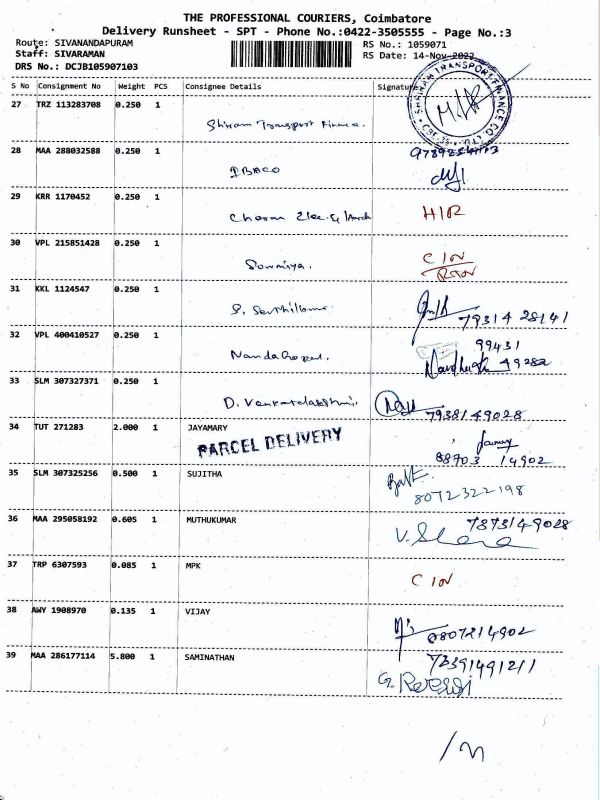 THE PROFESSIONAL COURIERS, Coimbatore
Delivery Runsheet - SPT - Phone No.:0422-3505555 - Page No.:3
Route: SIVANANDAPURAM RS No.: 1059071
Staff: SIVARAMAN RS Date: 14-Nov-2022
DRS No.: DCJB105907103
S No Consignment No Weight PCS Consignee Details Signature
27 TRZ 113283708 0.250 1
SHRIRAM TRANSPORT FINANCE CO. LTD.
Shriram Transport Finance.
28 MAA 288032588 0.250 1
IBACO
29 KRR 1170452 0.250 1
Charan Elec H/R
30 VPL 215851428 0.250 1 C/N
Sowmiya.
31 KKL 1124547 0.250 1
79314 28141
32 VPL 400410527 0.250 1 99431
49282
33 SLM 307327371 0.250 1
D. Venkatalakshmi. 7938149028
34 TUT 271283 2.000 1 JAYAMARY
PARCEL DELIVERY
88703 14902
35 SLM 307325256 0.500 1 SUJITHA
8072322198
36 MAA 295058192 0.605 1 MUTHUKUMAR 7873149028
37 TRP 6307593 0.085 1 MPK
C/N
38 AWY 1908970 0.135 1 VIJAY
0807214902
39 MAA 286177114 5.800 1 SAMINATHAN